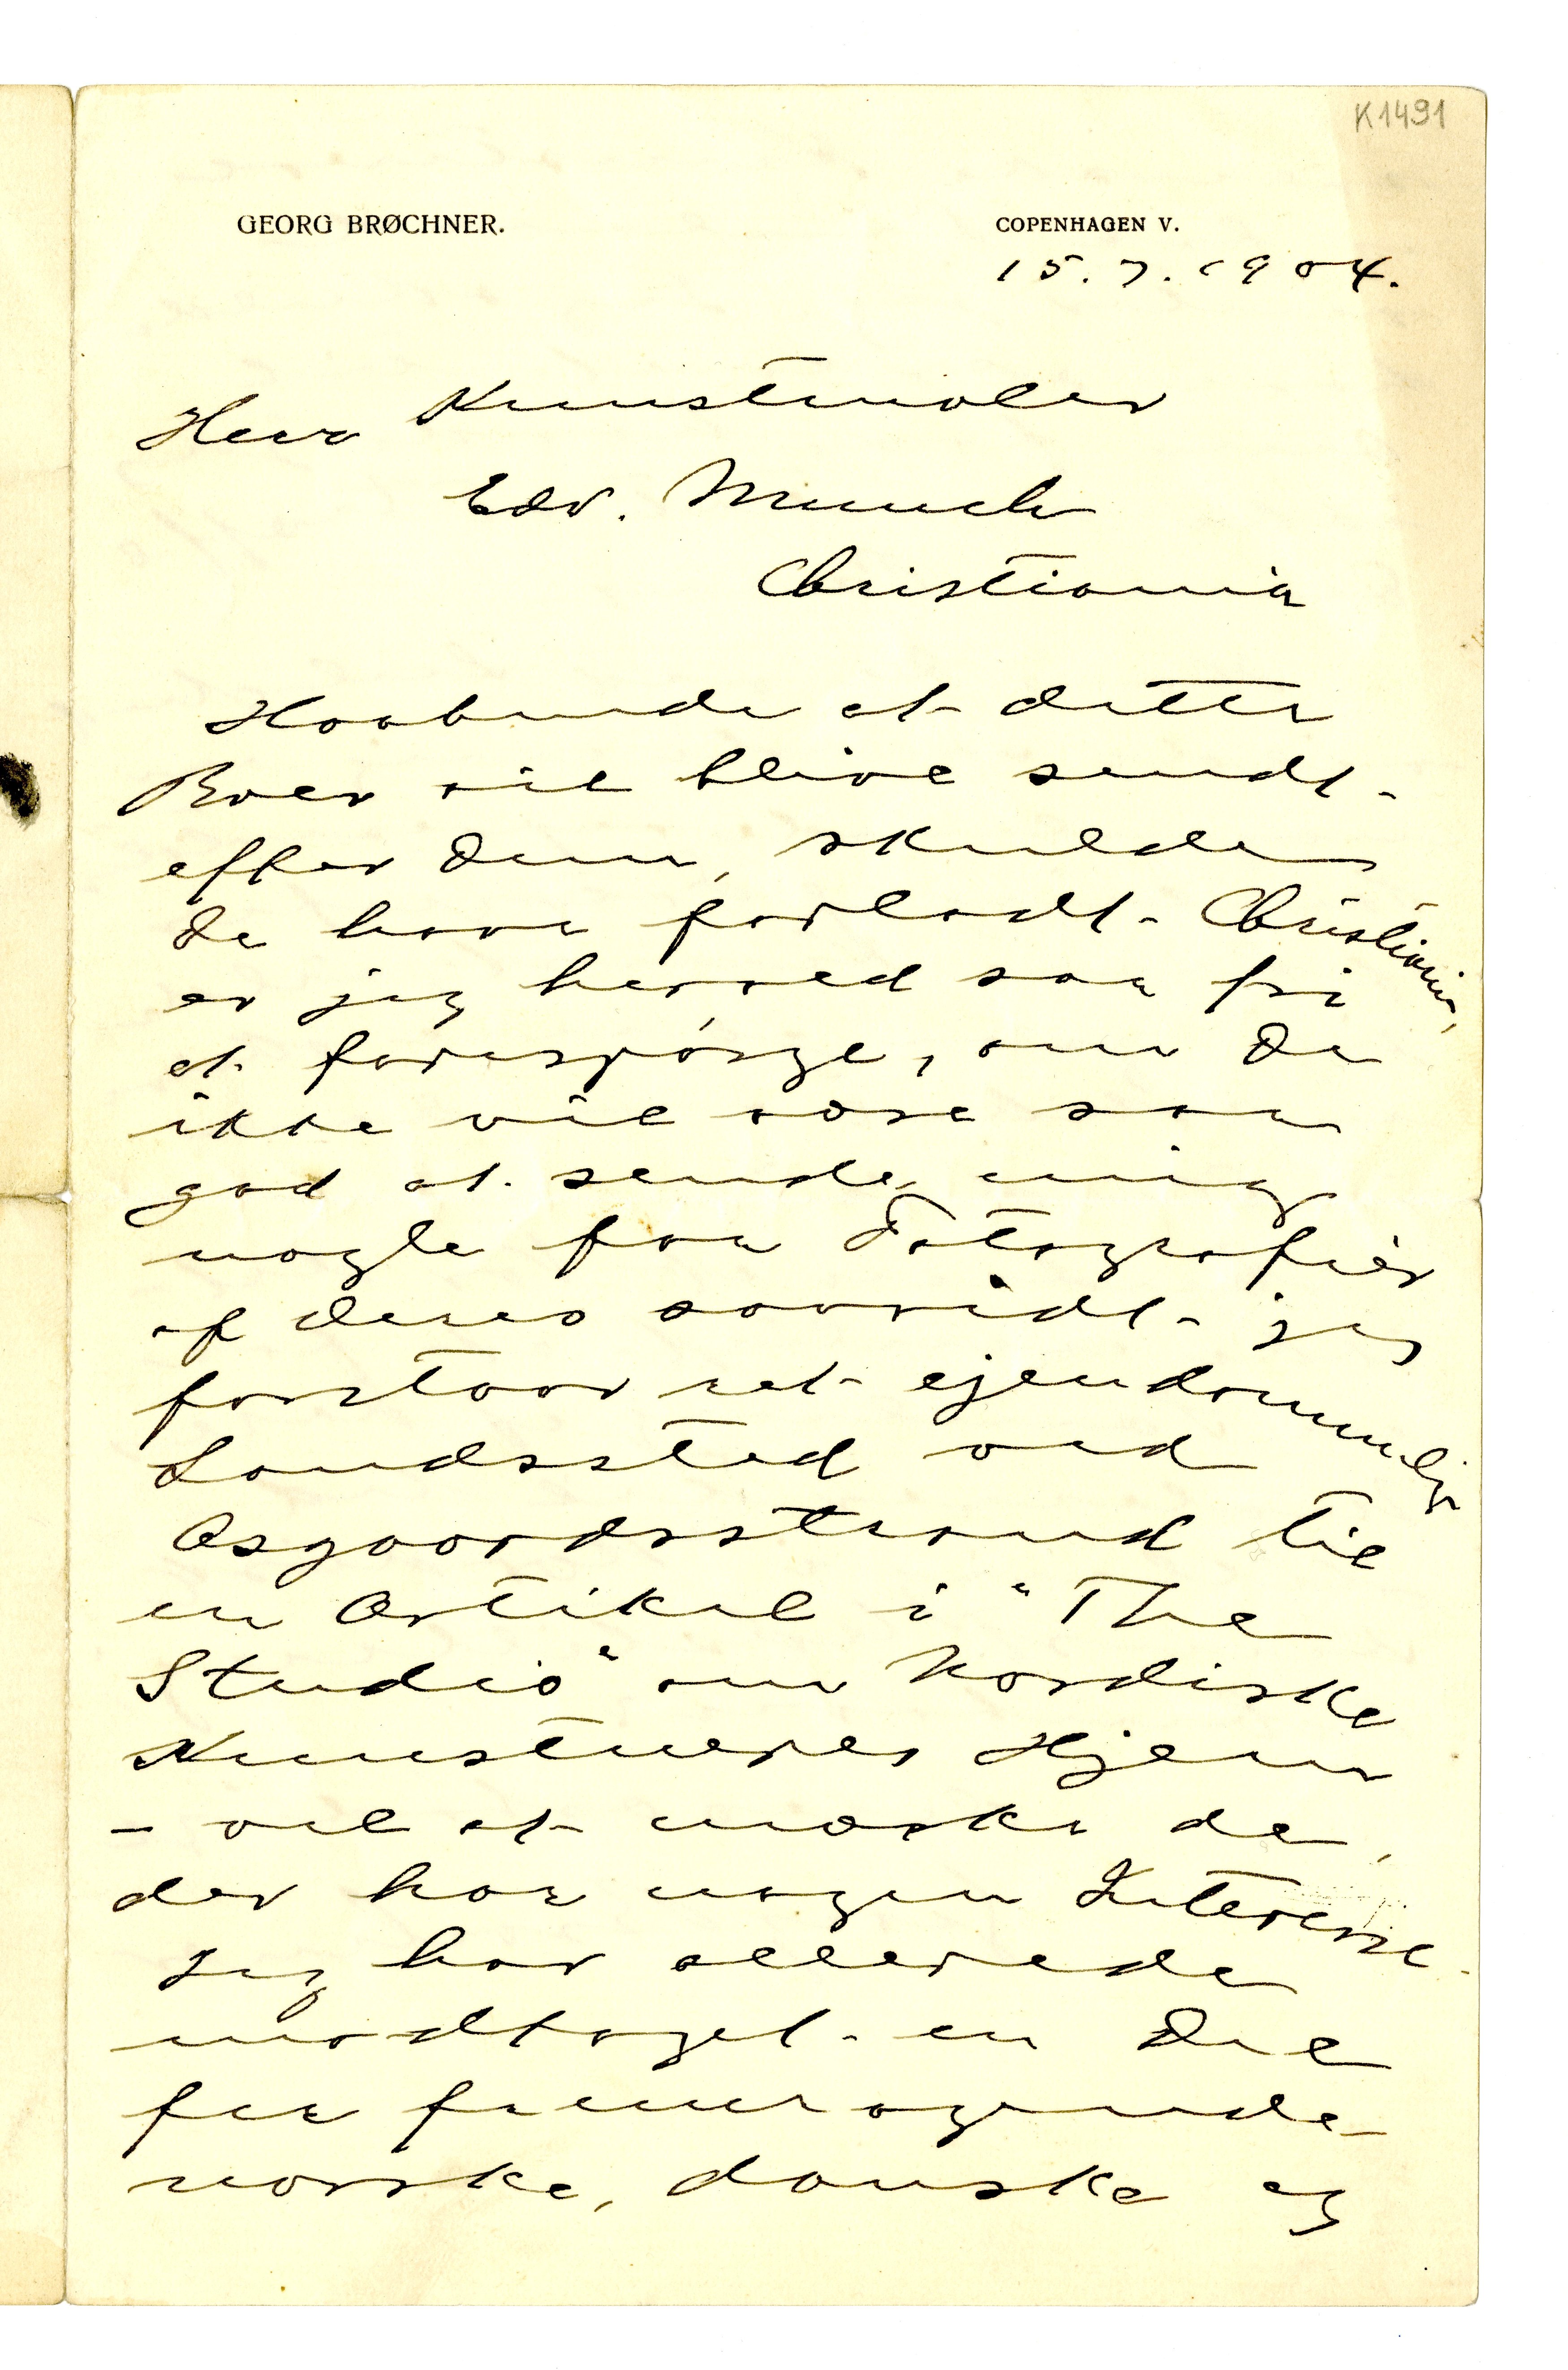 K1491
GEORG BRØCHNER.
COPENHAGEN V.
15.7.1904.
Herr Kunstmaler
Edv. Munch
Christiania
Haabende at dette
Brev vil blive sendt
efter Dem, skulde
De have forladt Christiania,
er jeg herved saa fri
at forespörge, om De
ikke vil være saa
god at sende mig
nogle faa Fotografier
af Deres saavidt jeg
forstaar ret ejendommelige
Landssted ved
Asgaardsstrand til
en Artikel i "The
Studio" om Nordiske
Kunstneres Hjem
– vel at mærke de,
der har nogen Interesse.
Jeg har allerede
modtaget en Del
fra fremragende
norske, danske og